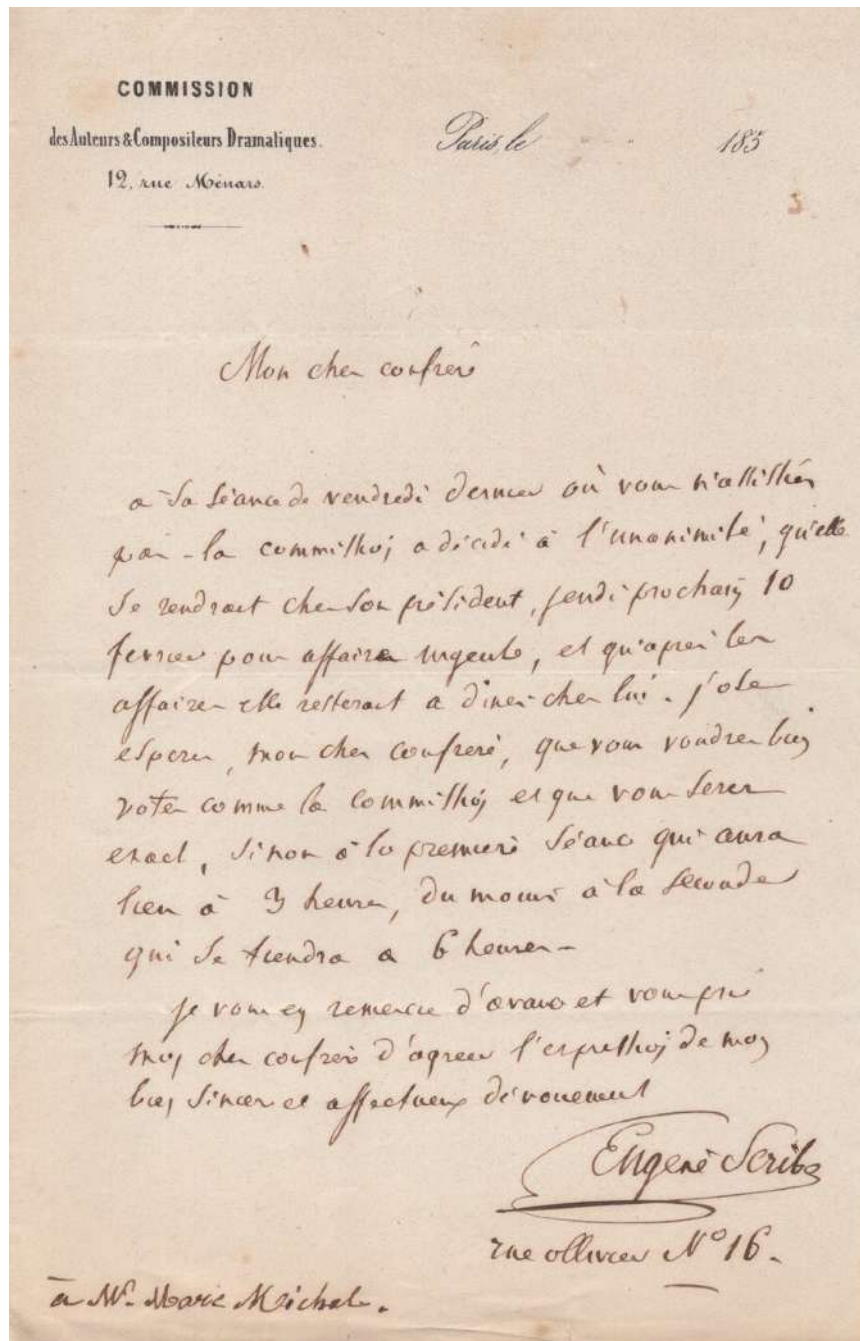 COMMISSION
des Auteurs & Compositeurs Dramatiques.
12, rue Ménars.
Paris, le 185
Mon cher confrère
à sa séance de vendredi dernier où vous n'assistiez
pas - la commission a décidé à l'unanimité, qu'elle
se rendrait chez son président, jeudi prochain 10
fevrier pour affaires urgente, et qu'après les
affaires elle resterait a diner chez lui. j'ose
esperer, mon cher confrere, que vous voudrez bien
voter comme la commission et que vous serez
exact, sinon à la premiere séance qui aura
lieu à 3 heures, du moins à la seconde
qui se tiendra a 6 heures -
je vous en remercie d'avance et vous prie
mon cher confrere d'agreer l'expression de mon
bien sincere et affectueux dévouement
Eugène Scribe
rue ollivier N° 16.
à Mr. Marc Michel.